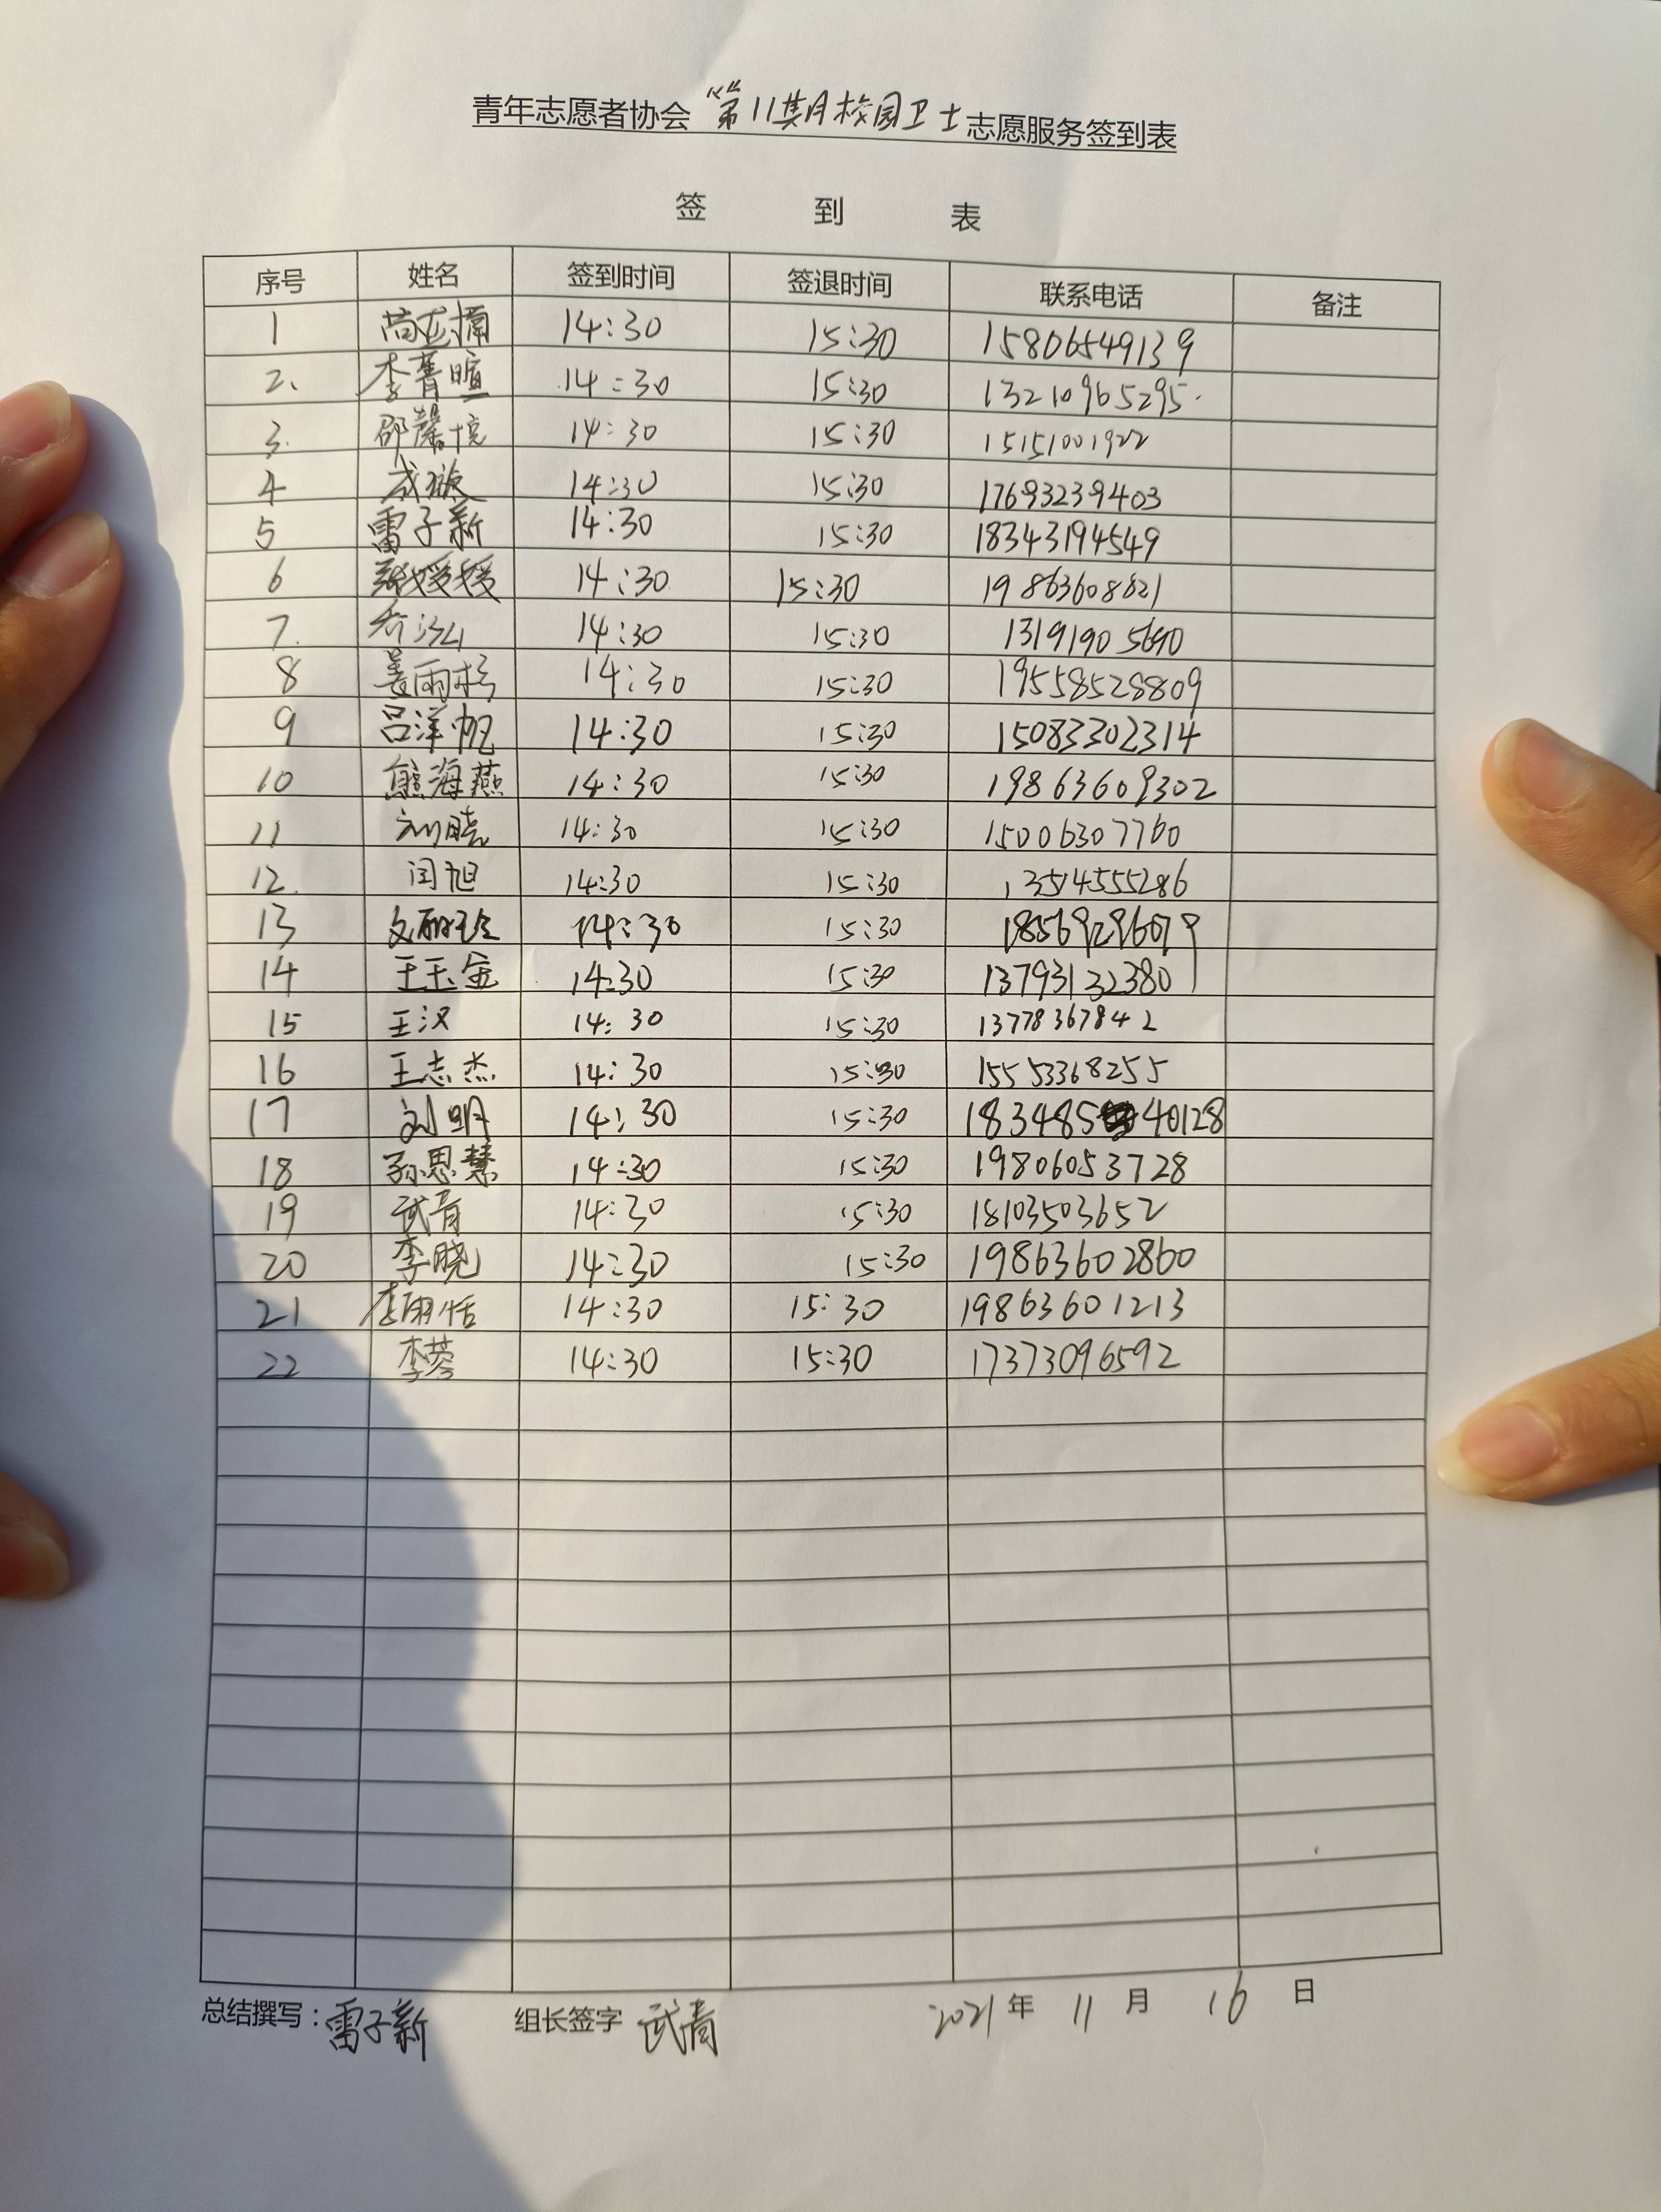 青年志愿者协会“第11期校园卫士志愿服务签到表
签 到 表
序号 姓名 签到时间 签退时间 联系电话 备注
1 14:30 15:30 15806549139
2. 李菁暄 14:30 15:30 13210965295.
3. 邵馨悦 14:30 15:30 15151001922
4 成璇 14:30 15:30 17693239403
5 雷子新 14:30 15:30 18343194549
6 14:30 15:30 19863608621
7. 14:30 15:30
8 姜雨杉 14:30 15:30 19558528809
9 吕洋帆 14:30 15:30 15083302314
10 熊海燕 14:30 15:30 19863609302
11 刘晓 14:30 15:30 15006307760
12. 闫旭 14:30 15:30 13514555286
13 文丽玲 14:30 15:30
14 王玉金 14:30 15:30 13793132380
15 王汉 14:30 15:30 13778367842
16 王志杰 14:30 15:30 15553368255
17 刘明 14:30 15:30 18348540128
18 孙思慧 14:30 15:30 19806053728
19 武青 14:30 15:30 18103503652
20 李晓 14:30 15:30 19863602860
21 李雨恬 14:30 15:30 19863601213
22 李蓉 14:30 15:30 17373096592
总结撰写：雷子新 组长签字 武青 2021年 11月 16日